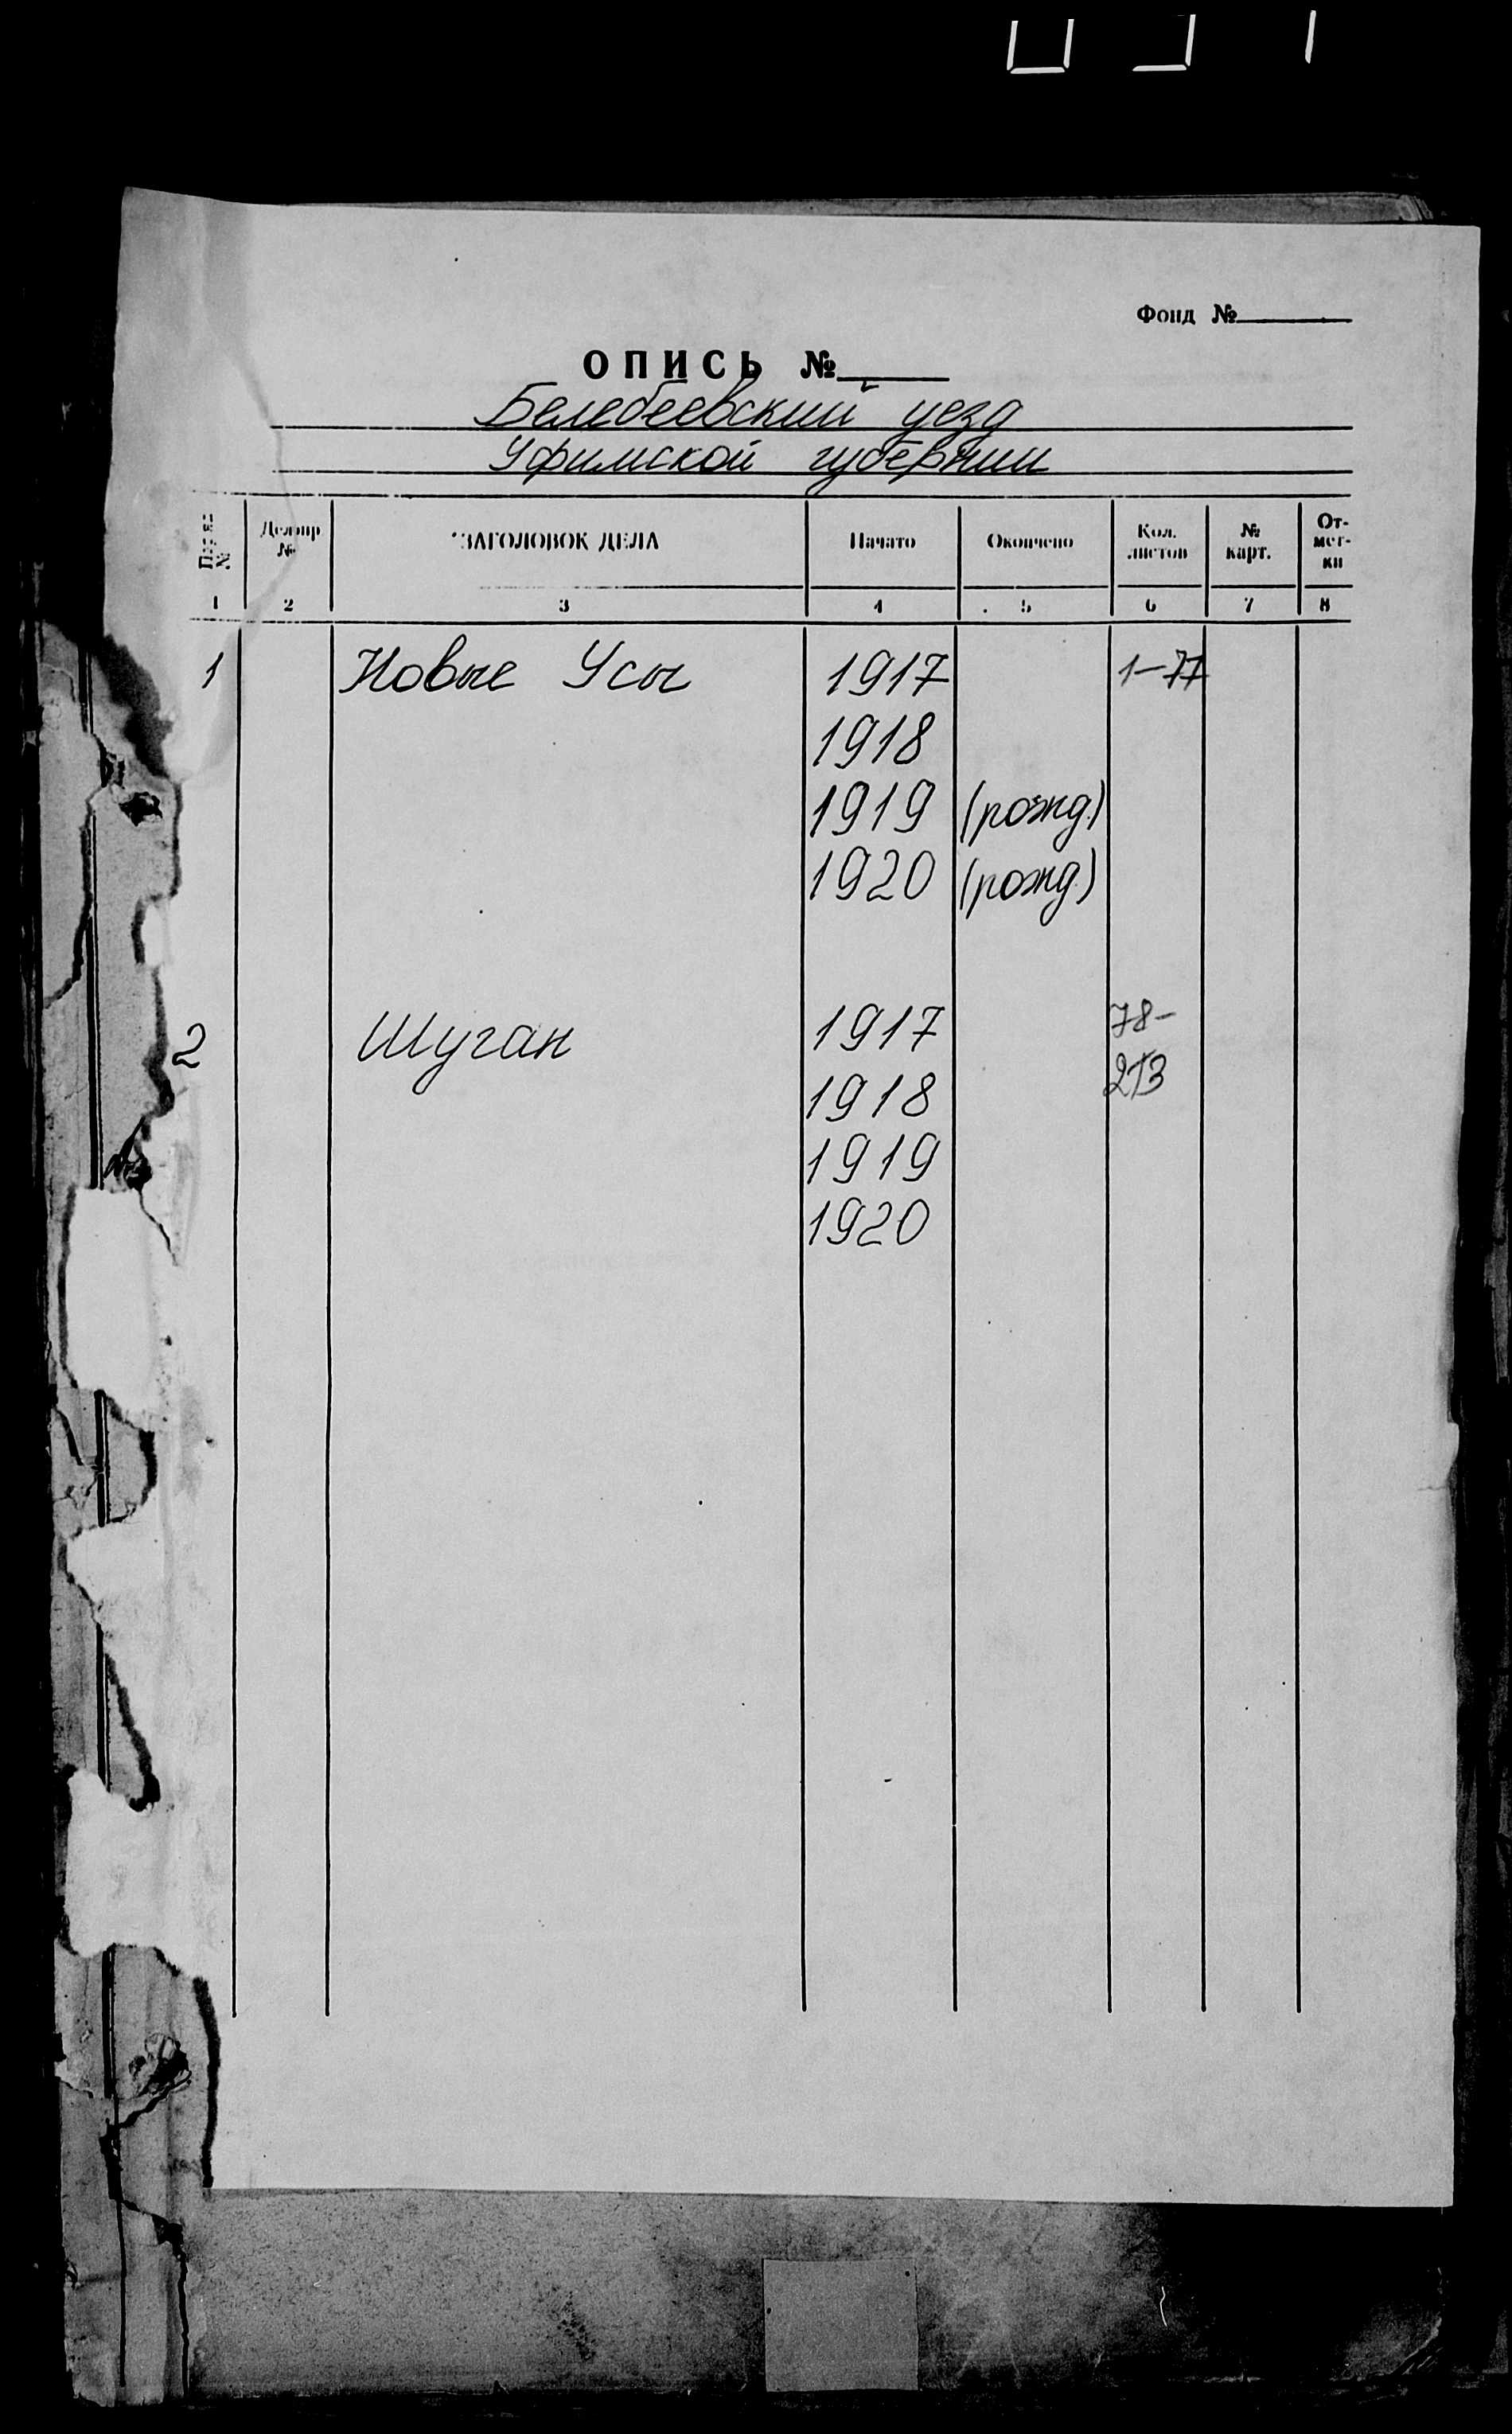 Фонд №
ОПИСЬ №
Белебеевский уезд
Уфимской губернии
№ Дел пр № ЗАГОЛОВОК ДЕЛА Начато Окончено Кол. листов № карт. От-мет-ки
1 2 3 4 5 6 7 8
1 Новые Усы 1917 1-77
1918
1919 (рожд.)
1920 (рожд.)
2 Шуган 1917 78-
1918 213
1919
1920